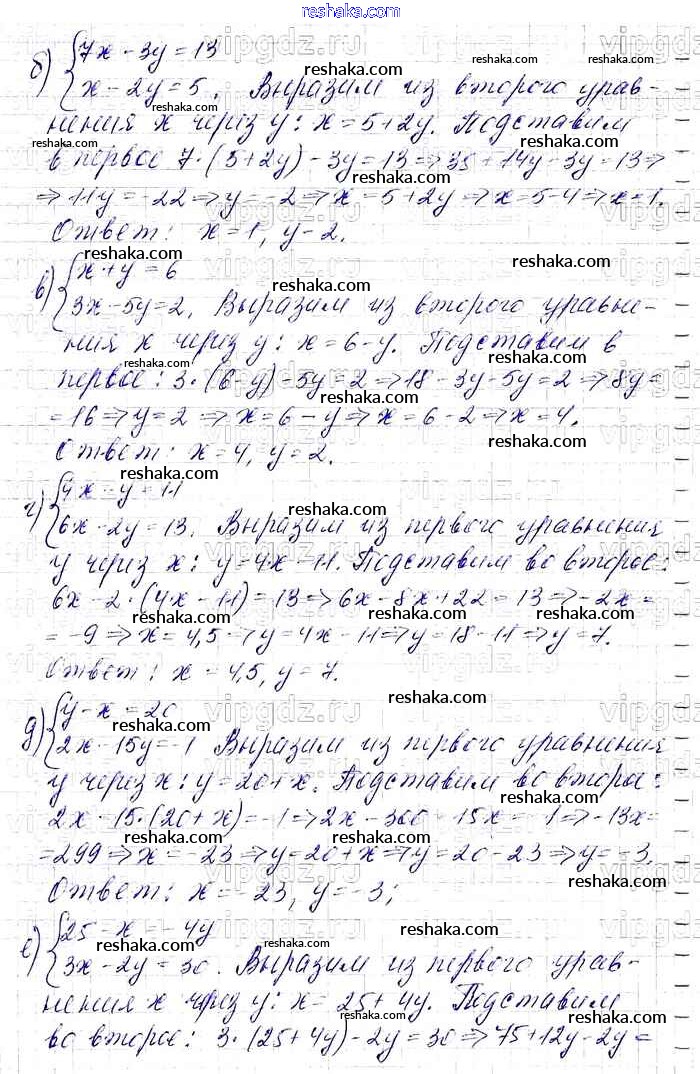 reshaka.com
б) { 7x - 3y = 13
{ x - 2y = 5. Выразим из второго урав-
нения x через y: x = 5 + 2y. Подставим
в первое 7·(5+2y) - 3y = 13 ⇒ 35 + 14y - 3y = 13 ⇒
⇒ 11y = -22 ⇒ y = -2 ⇒ x = 5 + 2y ⇒ x = 5 - 4 ⇒ x = 1.
Ответ: x = 1, y - 2.
в) { x + y = 6
{ 3x - 5y = 2. Выразим из второго уравне-
ния x через y: x = 6 - y. Подставим в
первое: 3·(6-y) - 5y = 2 ⇒ 18 - 3y - 5y = 2 ⇒ 8y =
= 16 ⇒ y = 2 ⇒ x = 6 - y ⇒ x = 6 - 2 ⇒ x = 4.
Ответ: x = 4, y = 2.
г) { 4x - y = 11
{ 6x - 2y = 13. Выразим из первого уравнения
y через x: y = 4x - 11. Подставим во второе:
6x - 2·(4x - 11) = 13 ⇒ 6x - 8x + 22 = 13 ⇒ -2x =
= -9 ⇒ x = 4,5 ⇒ y = 4x - 11 ⇒ y = 18 - 11 ⇒ y = 7.
Ответ: x = 4,5, y = 7.
д) { y - x = 20
{ 2x - 15y = -1 Выразим из первого уравнения
y через x: y = 20 + x. Подставим во второе:
2x - 15·(20 + x) = -1 ⇒ 2x - 300 - 15x = -1 ⇒ -13x =
= 299 ⇒ x = -23 ⇒ y = 20 + x ⇒ y = 20 - 23 ⇒ y = -3.
Ответ: x = -23, y = -3;
е) { 25 - x = -4y
{ 3x - 2y = 30. Выразим из первого урав-
нения x через y: x = 25 + 4y. Подставим
во второе: 3·(25 + 4y) - 2y = 30 ⇒ 75 + 12y - 2y =